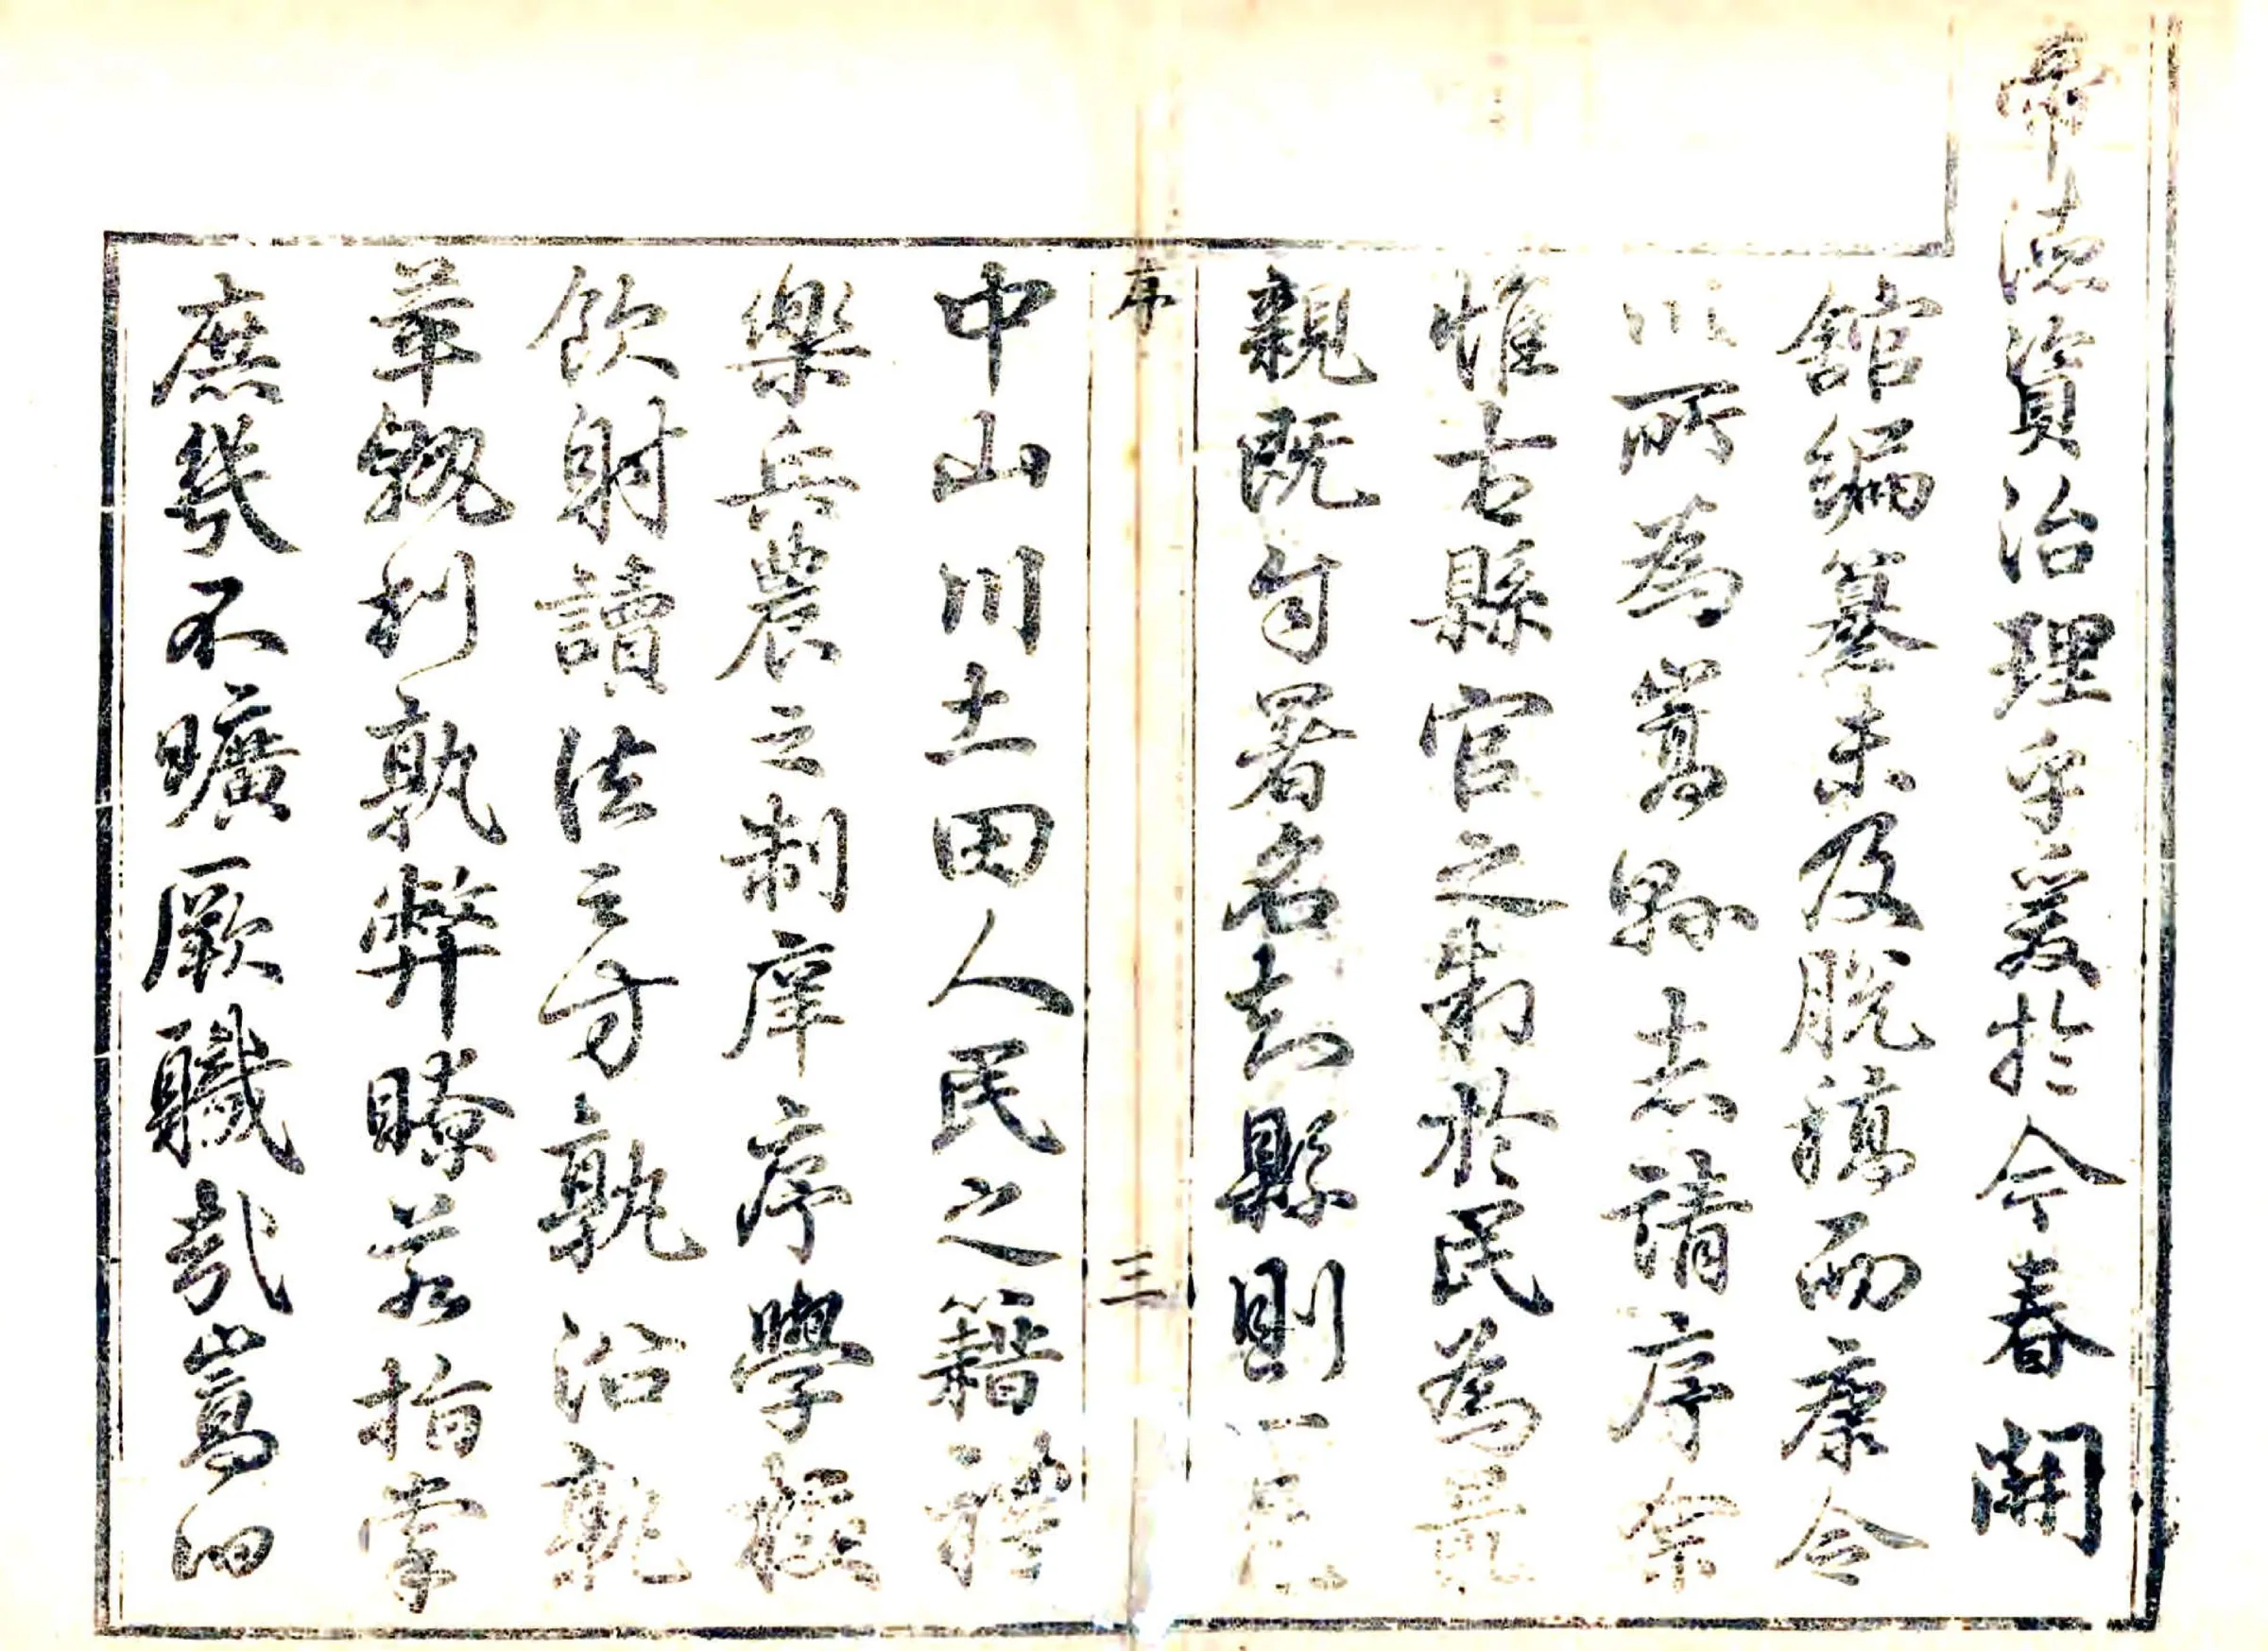 帝德資治理乎爰於今春開
館編纂未及脫稿而康令
以所為嵩縣志請序余
惟古縣官之制於民為最
親既自署名知縣則一邑
序
三
中山川土田人民之籍禮
樂兵農之制庠序學校
飲射讀法之方孰沿孰
革孰利孰弊瞭若指掌
庶幾不曠厥職哉嵩旧